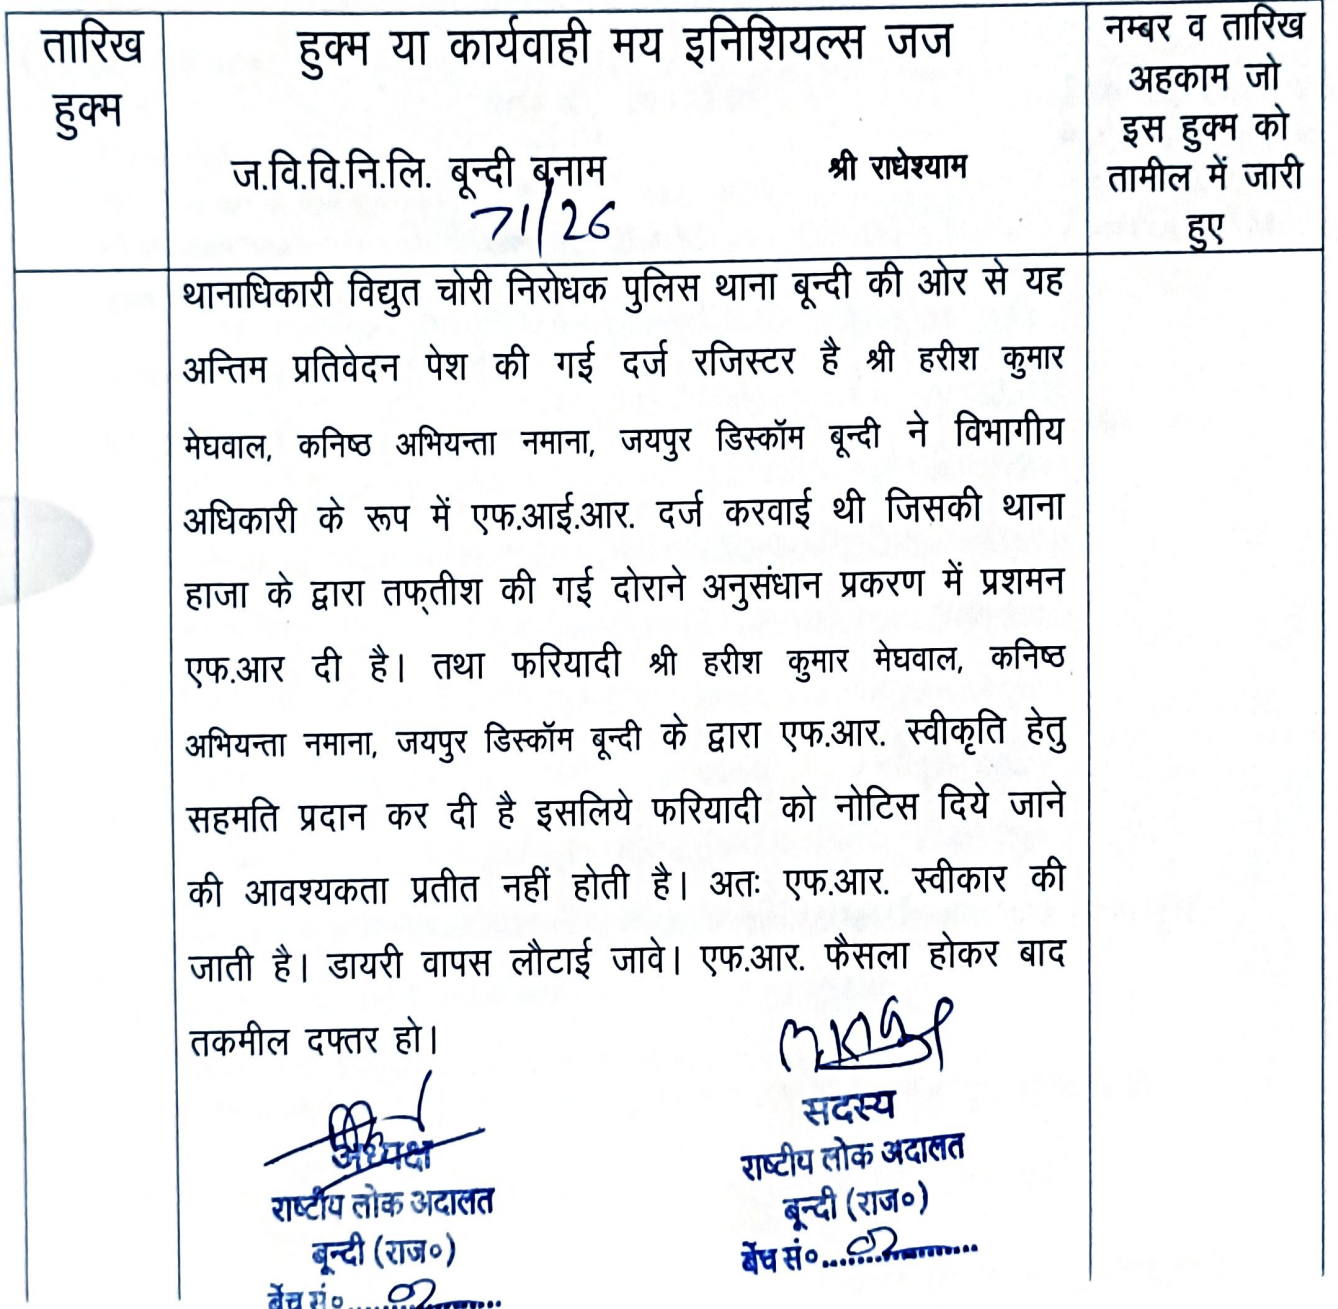 तारिख हुक्म
हुक्म या कार्यवाही मय इनिशियल्स जज
ज.वि.वि.नि.लि. बून्दी बनाम श्री राधेश्याम
71/26
नम्बर व तारिख
अहकाम जो
इस हुक्म को
तामील में जारी
हुए
थानाधिकारी विद्युत चोरी निरोधक पुलिस थाना बून्दी की ओर से यह
अन्तिम प्रतिवेदन पेश की गई दर्ज रजिस्टर है श्री हरीश कुमार
मेघवाल, कनिष्ठ अभियन्ता नमाना, जयपुर डिस्कॉम बून्दी ने विभागीय
अधिकारी के रूप में एफ.आई.आर. दर्ज करवाई थी जिसकी थाना
हाजा के द्वारा तफ्तीश की गई दोराने अनुसंधान प्रकरण में प्रशमन
एफ.आर दी है। तथा फरियादी श्री हरीश कुमार मेघवाल, कनिष्ठ
अभियन्ता नमाना, जयपुर डिस्कॉम बून्दी के द्वारा एफ.आर. स्वीकृति हेतु
सहमति प्रदान कर दी है इसलिये फरियादी को नोटिस दिये जाने
की आवश्यकता प्रतीत नहीं होती है। अतः एफ.आर. स्वीकार की
जाती है। डायरी वापस लौटाई जावे। एफ.आर. फैसला होकर बाद
तकमील दफ्तर हो।
अध्यक्ष
राष्टीय लोक अदालत
बून्दी (राज०)
बेंच सं०......02......
सदस्य
राष्टीय लोक अदालत
बून्दी (राज०)
बेंच सं०......02......